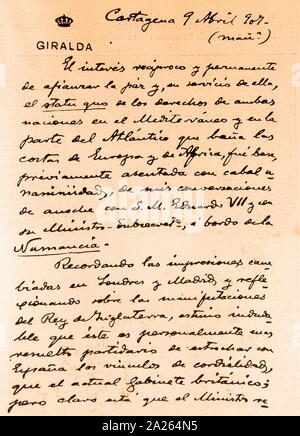 Cartagena 9 Abril 907-
(mañª)
GIRALDA
El interés recíproco y permanente
de afianzar la paz y, en servicio de ella,
el statu quo de los derechos de ambas
naciones en el Mediterráneo y en la
parte del Atlántico que baña las
costas de Europa y de Africa, fué base,
previamente asentada con cabal u-
nanimidad, de mis conversaciones
de anoche con S. M. Eduardo VII y con
su Ministro-Subsecretº, a bordo de la
Numancia.-
Recordando las impresiones cam-
biadas en Londres y Madrid y refle-
xionando sobre las manifestaciones
del Rey de Inglaterra, estimo induda-
ble que éste es personalmente más
resuelto partidario de estrechar con
España los vínculos de cordialidad,
que el actual Gabinete británico;
pero claro está que el Ministro re-
alamy
www.alamy.com - 2A264N5